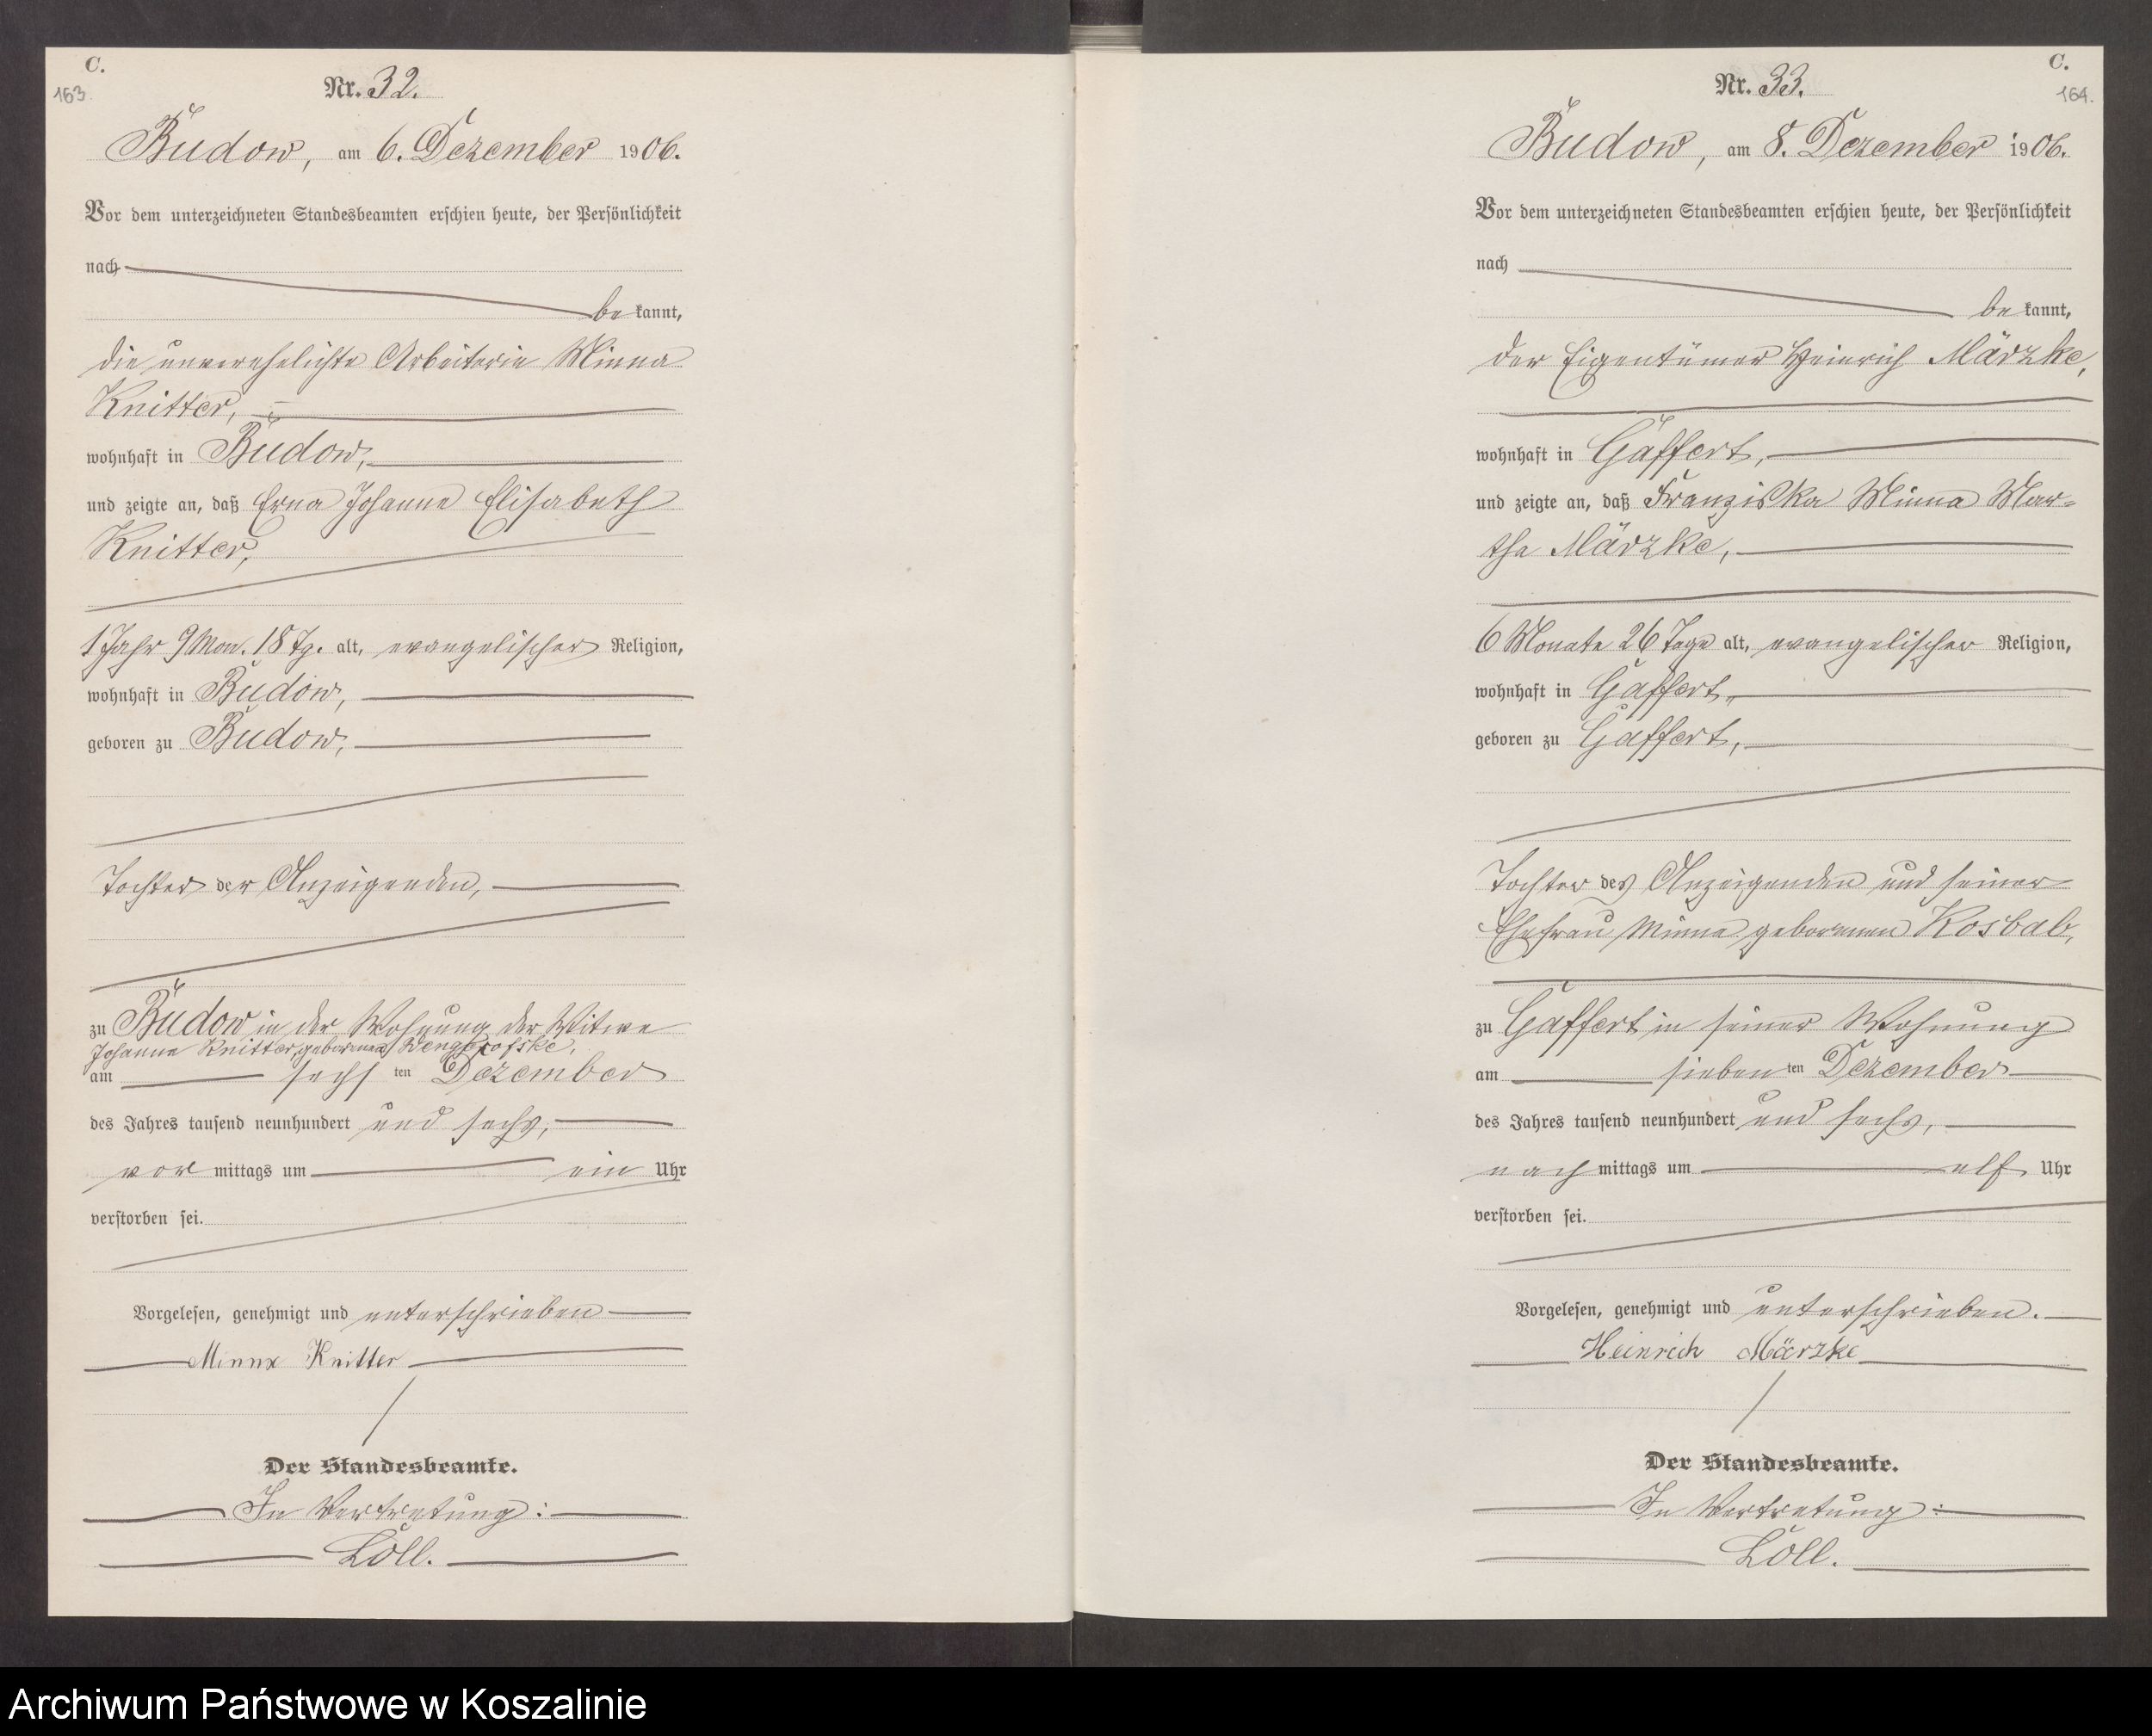 C.
163.
Nr. 32.
Budow, am 6. Dezember 1906.
Vor dem unterzeichneten Standesbeamten erschien heute, der Persönlichkeit
nach
be kannt,
die unverehelichte Arbeiterin Minna
Knitter,
wohnhaft in Budow,
und zeigte an, daß Erna Johanne Elisabeth
Knitter,
1 Jahr 9 Mon. 18 Tg. alt, evangelischer Religion,
wohnhaft in Budow,
geboren zu Budow,
Tochter der Anzeigenden,
zu Budow in der Wohnung der Witwe
Johanne Knitter, geborenen
am sechs ten Dezember
des Jahres tausend neunhundert und sechs,
vor mittags um ein Uhr
verstorben sei.
Vorgelesen, genehmigt und unterschrieben
Minna Knitter
Der Standesbeamte.
In Vertretung:
Löll.
C.
164.
Nr. 33.
Budow, am 8. Dezember 1906.
Vor dem unterzeichneten Standesbeamten erschien heute, der Persönlichkeit
nach
be kannt,
der Eigentümer Heinrich Märzke,
wohnhaft in Gaffert,
und zeigte an, daß Franziska Minna Mar-
tha Märzke,
6 Monate 26 Tage alt, evangelischer Religion,
wohnhaft in Gaffert,
geboren zu Gaffert,
Tochter des Anzeigenden und seiner
Ehefrau Minna geborenen Kosbab,
zu Gaffert in seiner Wohnung
am sieben ten Dezember
des Jahres tausend neunhundert und sechs,
nach mittags um elf Uhr
verstorben sei.
Vorgelesen, genehmigt und unterschrieben.
Heinrich Märzke
Der Standesbeamte.
In Vertretung:
Löll.
Archiwum Państwowe w Koszalinie